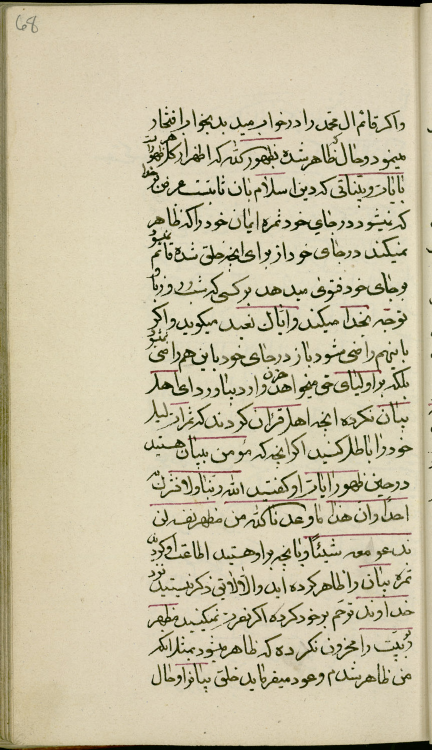 68
واکر قائم ال محمد را در خواب میدید بخواب افتخار
مینمود و حال ظاهر شده بظهور الله که اظهر از کل ظهور است
بایات و بیناتی که دین اسلام بان ثابت
که نمیشود در جای خود ثمره ایمان خود را که ظاهر
نمیکند در جای خود از برای انچه خلق شده قائم نمیشود
و جای خود فتوی میدهد بر کسی که شب و روز باو
توجه بخدا میکند و ایاک نعبد میکوید و اکر
باینهم راضی شود باز در جای خود باین هم راضی نمیشود
بلکه بر اولیای حی میخواهد حزن وارد بیاورد ای اهل
بیان نکرده انچه اهل قران کردند که ثمرات لیل
خود را باطل کنید اکر انچه که مومن ببیان هستید
در حین ظهور ایات او کفتید الله ربنا ولا نشرک به
احدا وان هذا ما وعدنا الله من مظهر نفسه لن
ندعو معه شیئا و بانچه براو هستید اطاعت او کردید
ثمره بیان را ظاهر کرده اید والا لایق ذکر نیستید نزد
خداوند ترحم بر خود کرده اکر نصرت نمیکنید مظهر
ربوبیت را محزون نکرده که ظاهر میشود بمثل انکه
من ظاهر شدم وعود میفرماید خلق بیان و حال